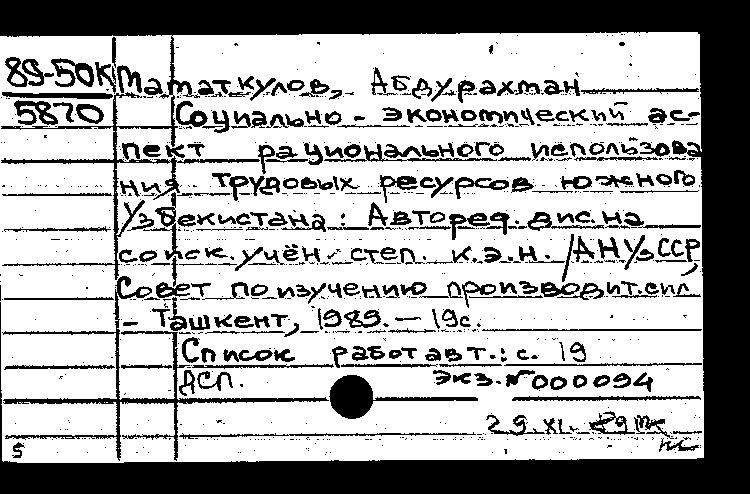 89-50К Маматкулов, Абдурахман
5870 Социально - экономический ас-
пект рационального использова
ния трудовых ресурсов южного
Узбекистана: Автореф. дис. на
соиск. учён. степ. к.э.н. /АН УзССР,
Совет по изучению производит. сил
- Ташкент, 1989. — 19с.
Список работ авт.: с. 19
ДСП. экз. № 000094
29. XI. 89
5